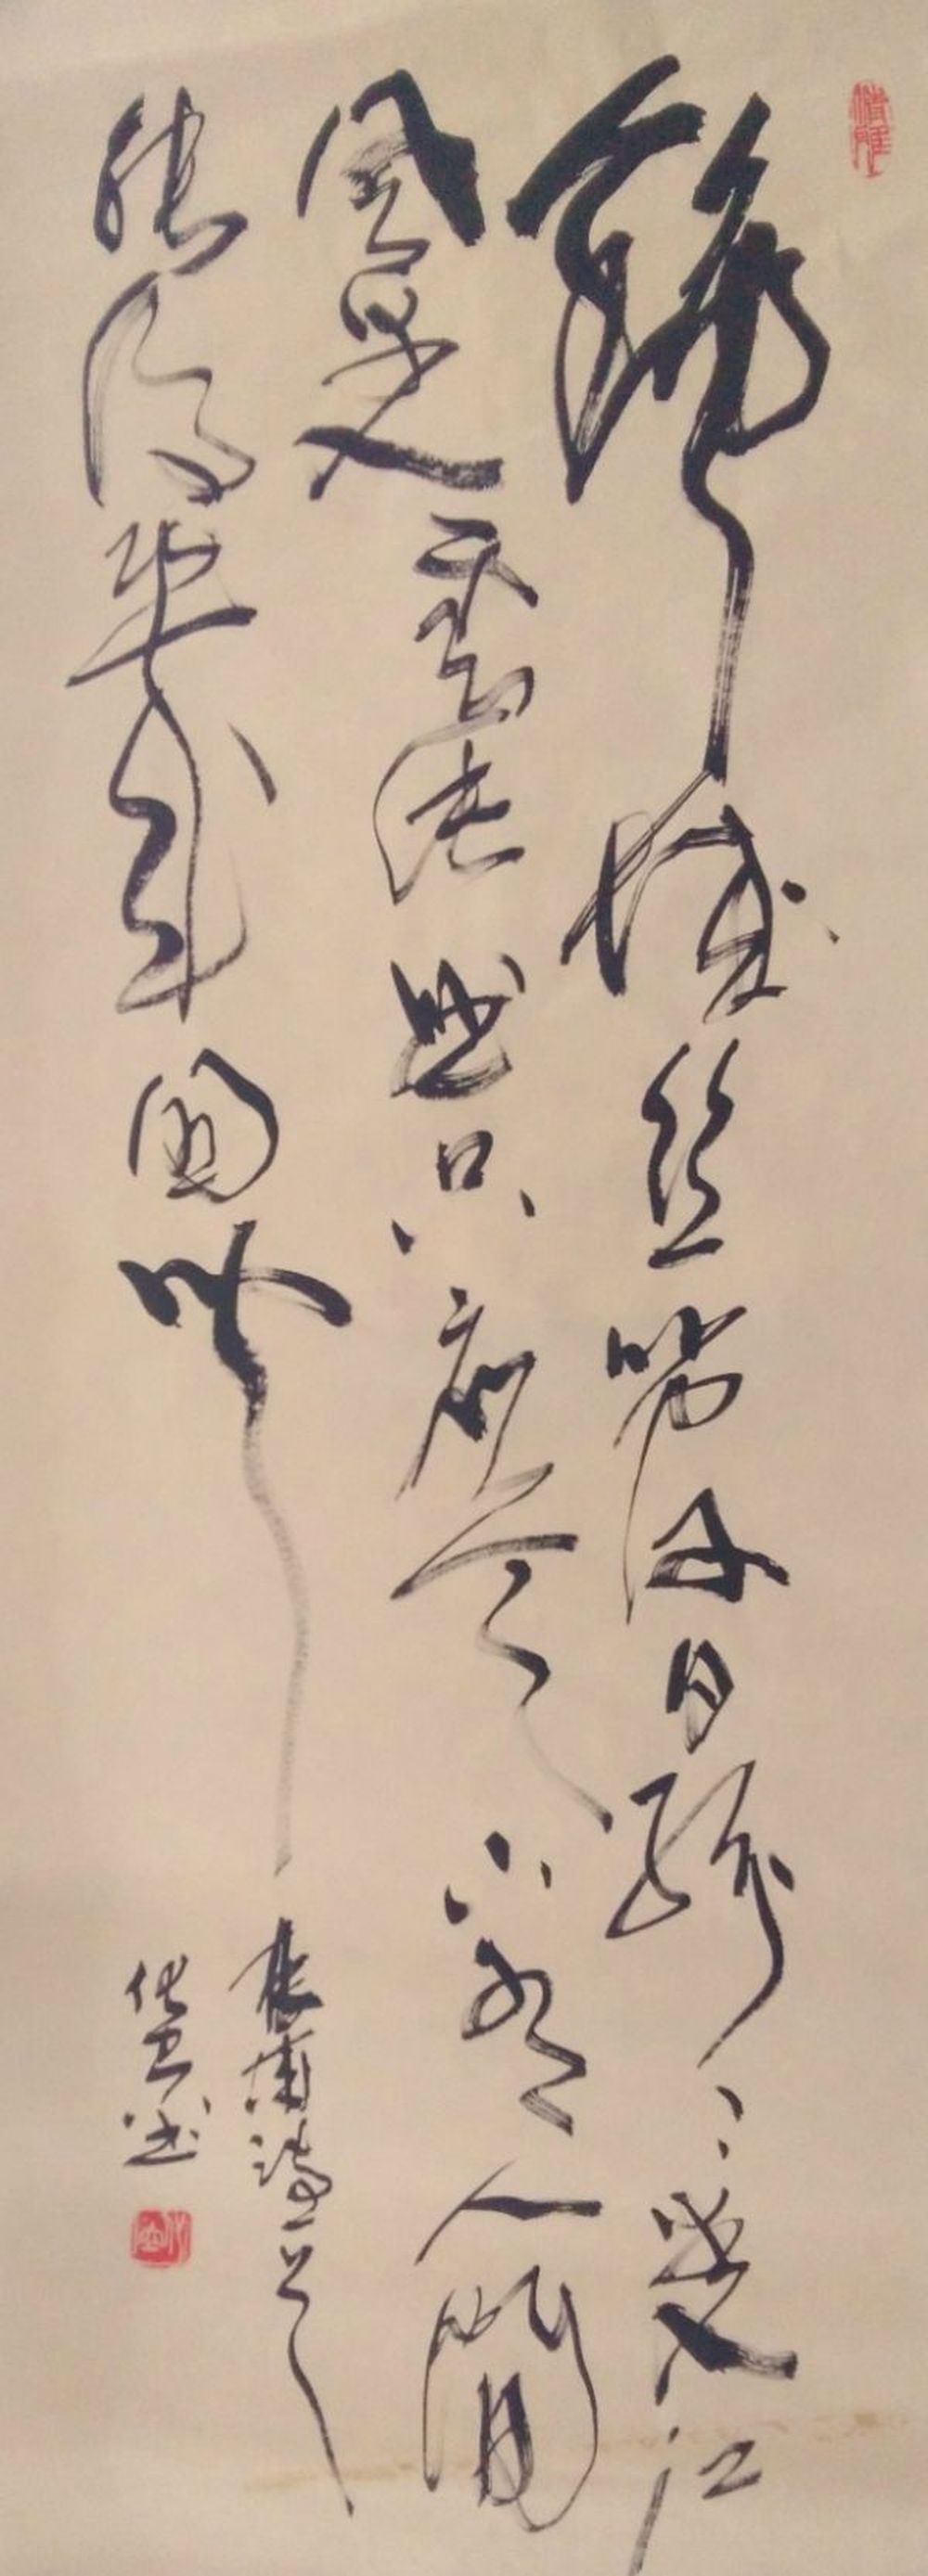 錦城絲管日紛〻半入江
風半入雲此曲只應天上有人間
能得幾回聞
杜甫詩一首